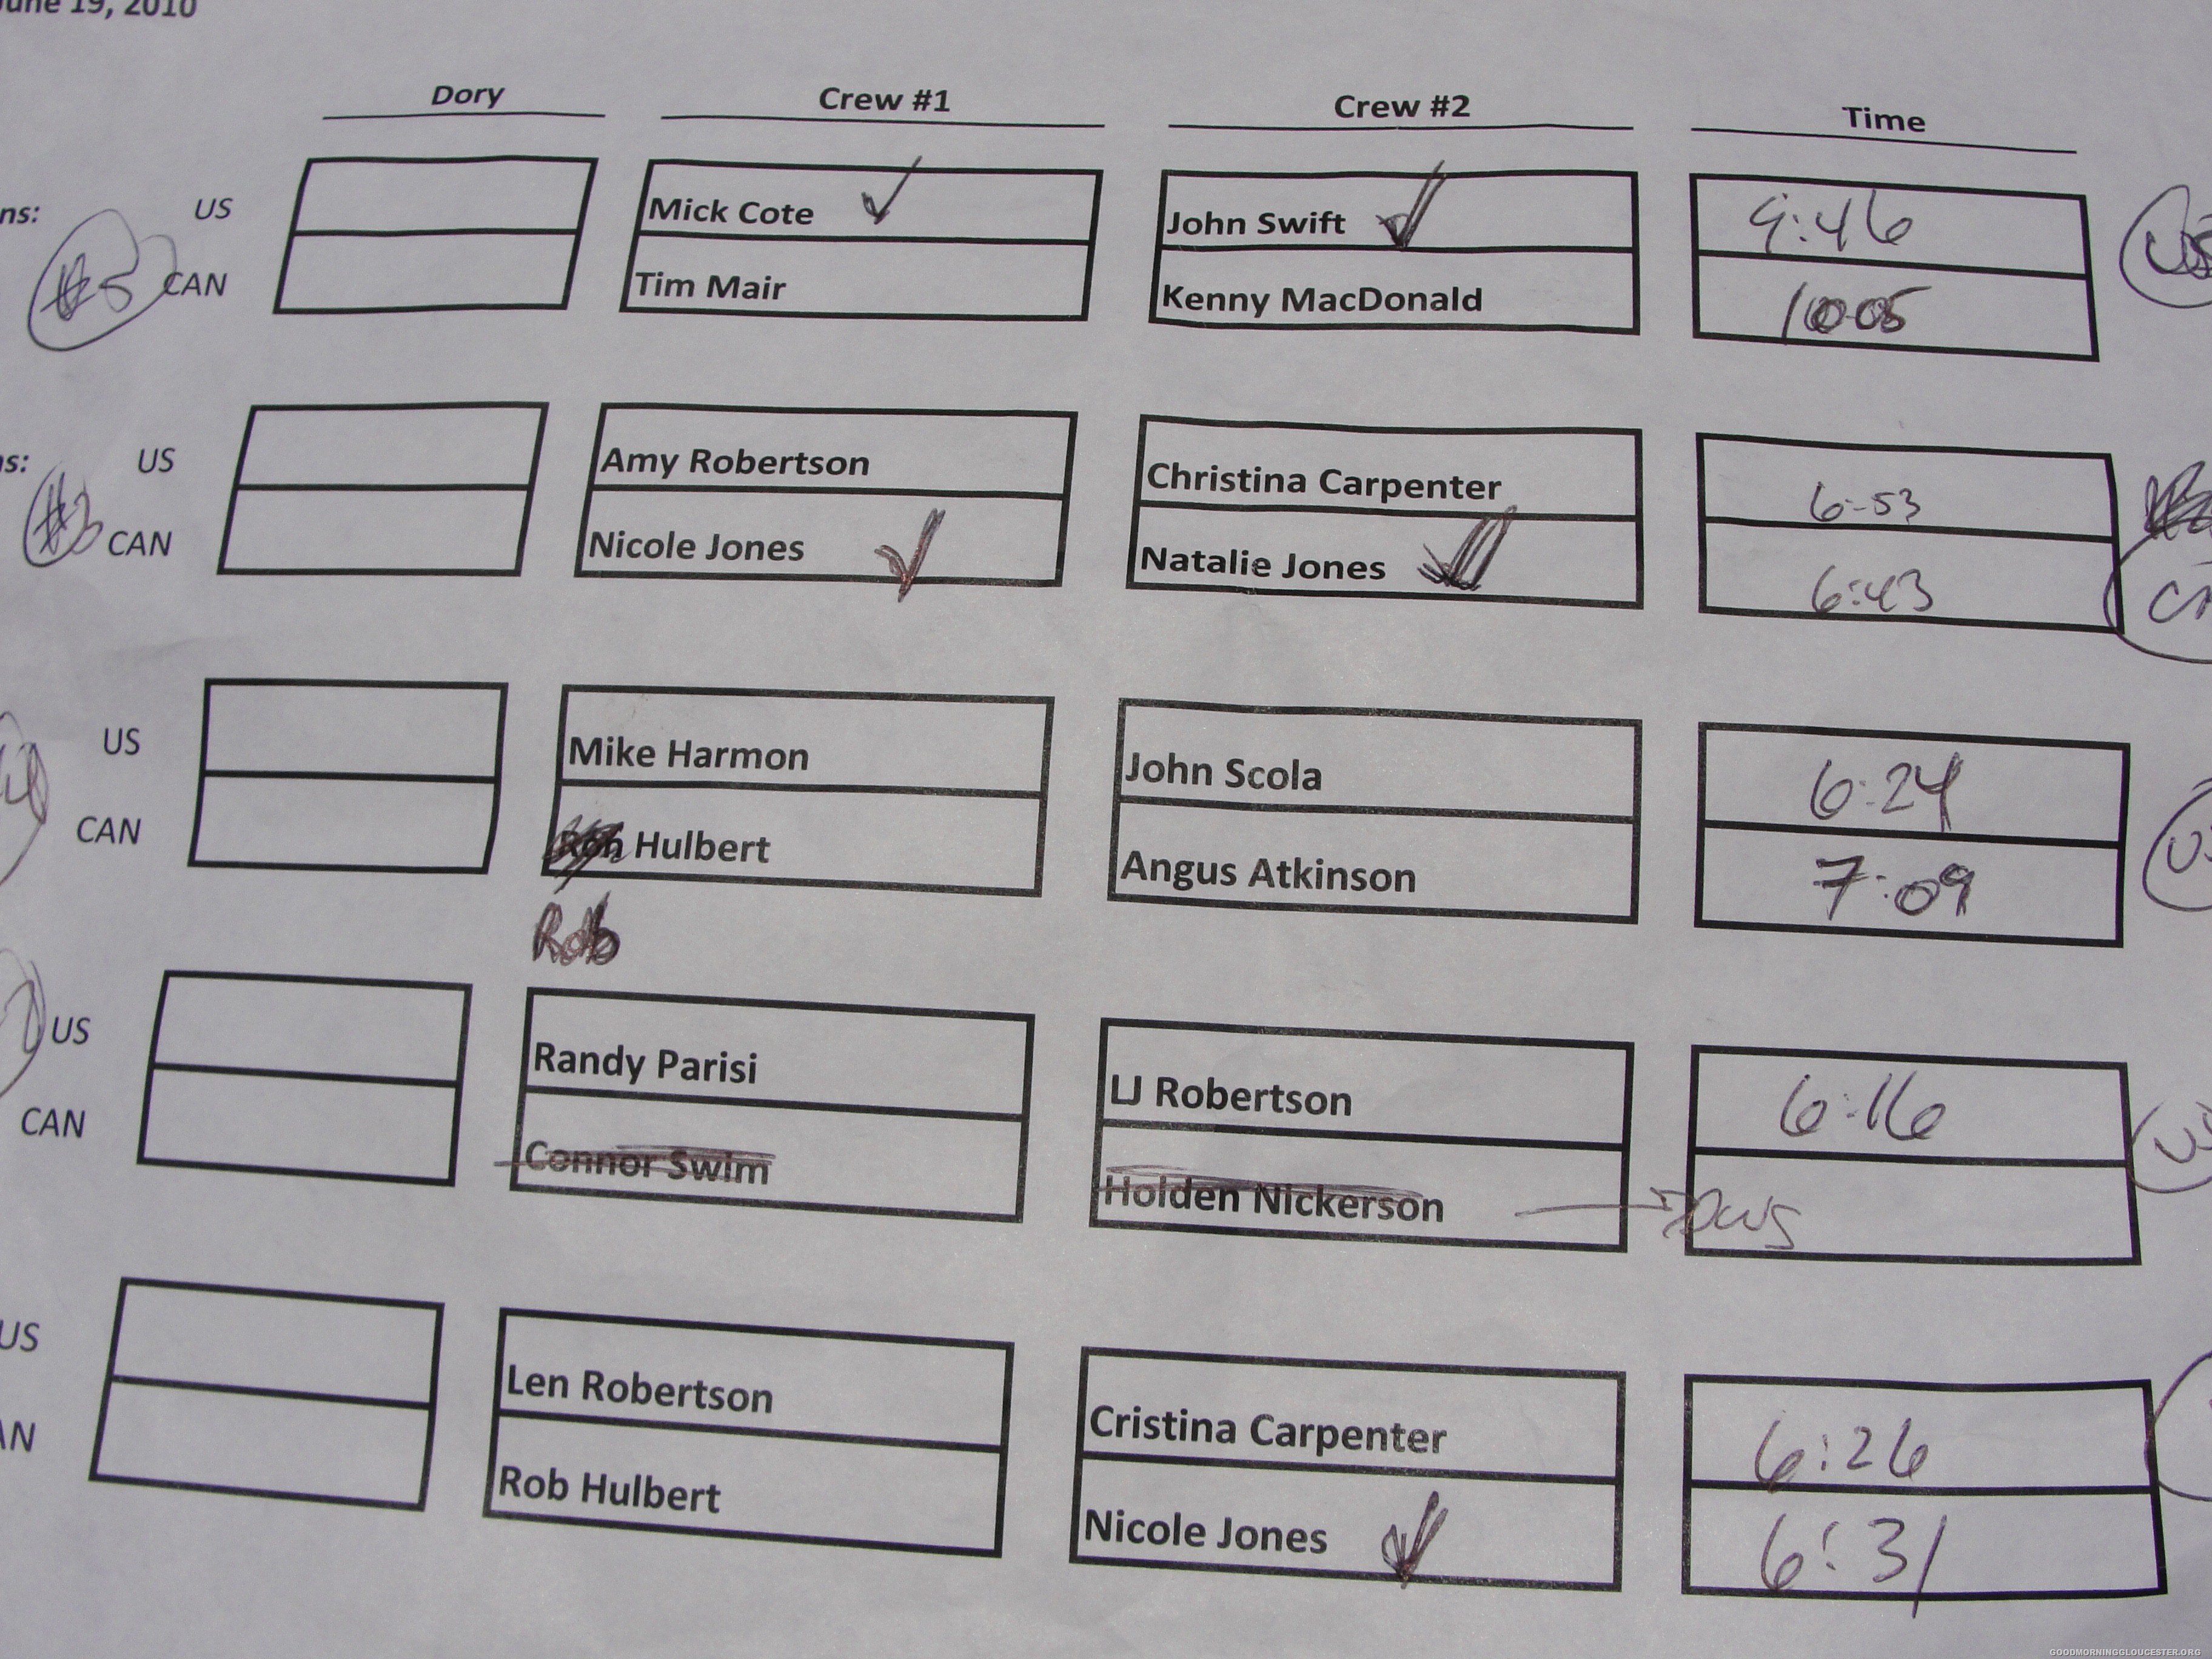 June 19, 2010
Dory Crew #1 Crew #2 Time
ns: US Mick Cote John Swift 9:46 US
#5 CAN Tim Mair Kenny MacDonald 10:05
s: US Amy Robertson Christina Carpenter 6-53
CAN Nicole Jones Natalie Jones 6:43
US Mike Harmon John Scola 6:24
CAN Hulbert Angus Atkinson 7:09
Rob
US Randy Parisi LJ Robertson 6:16
CAN Connor Swim Holden Nickerson
US Len Robertson Cristina Carpenter 6:26
AN Rob Hulbert Nicole Jones 6:31
GOODMORNINGGLOUCESTER.ORG